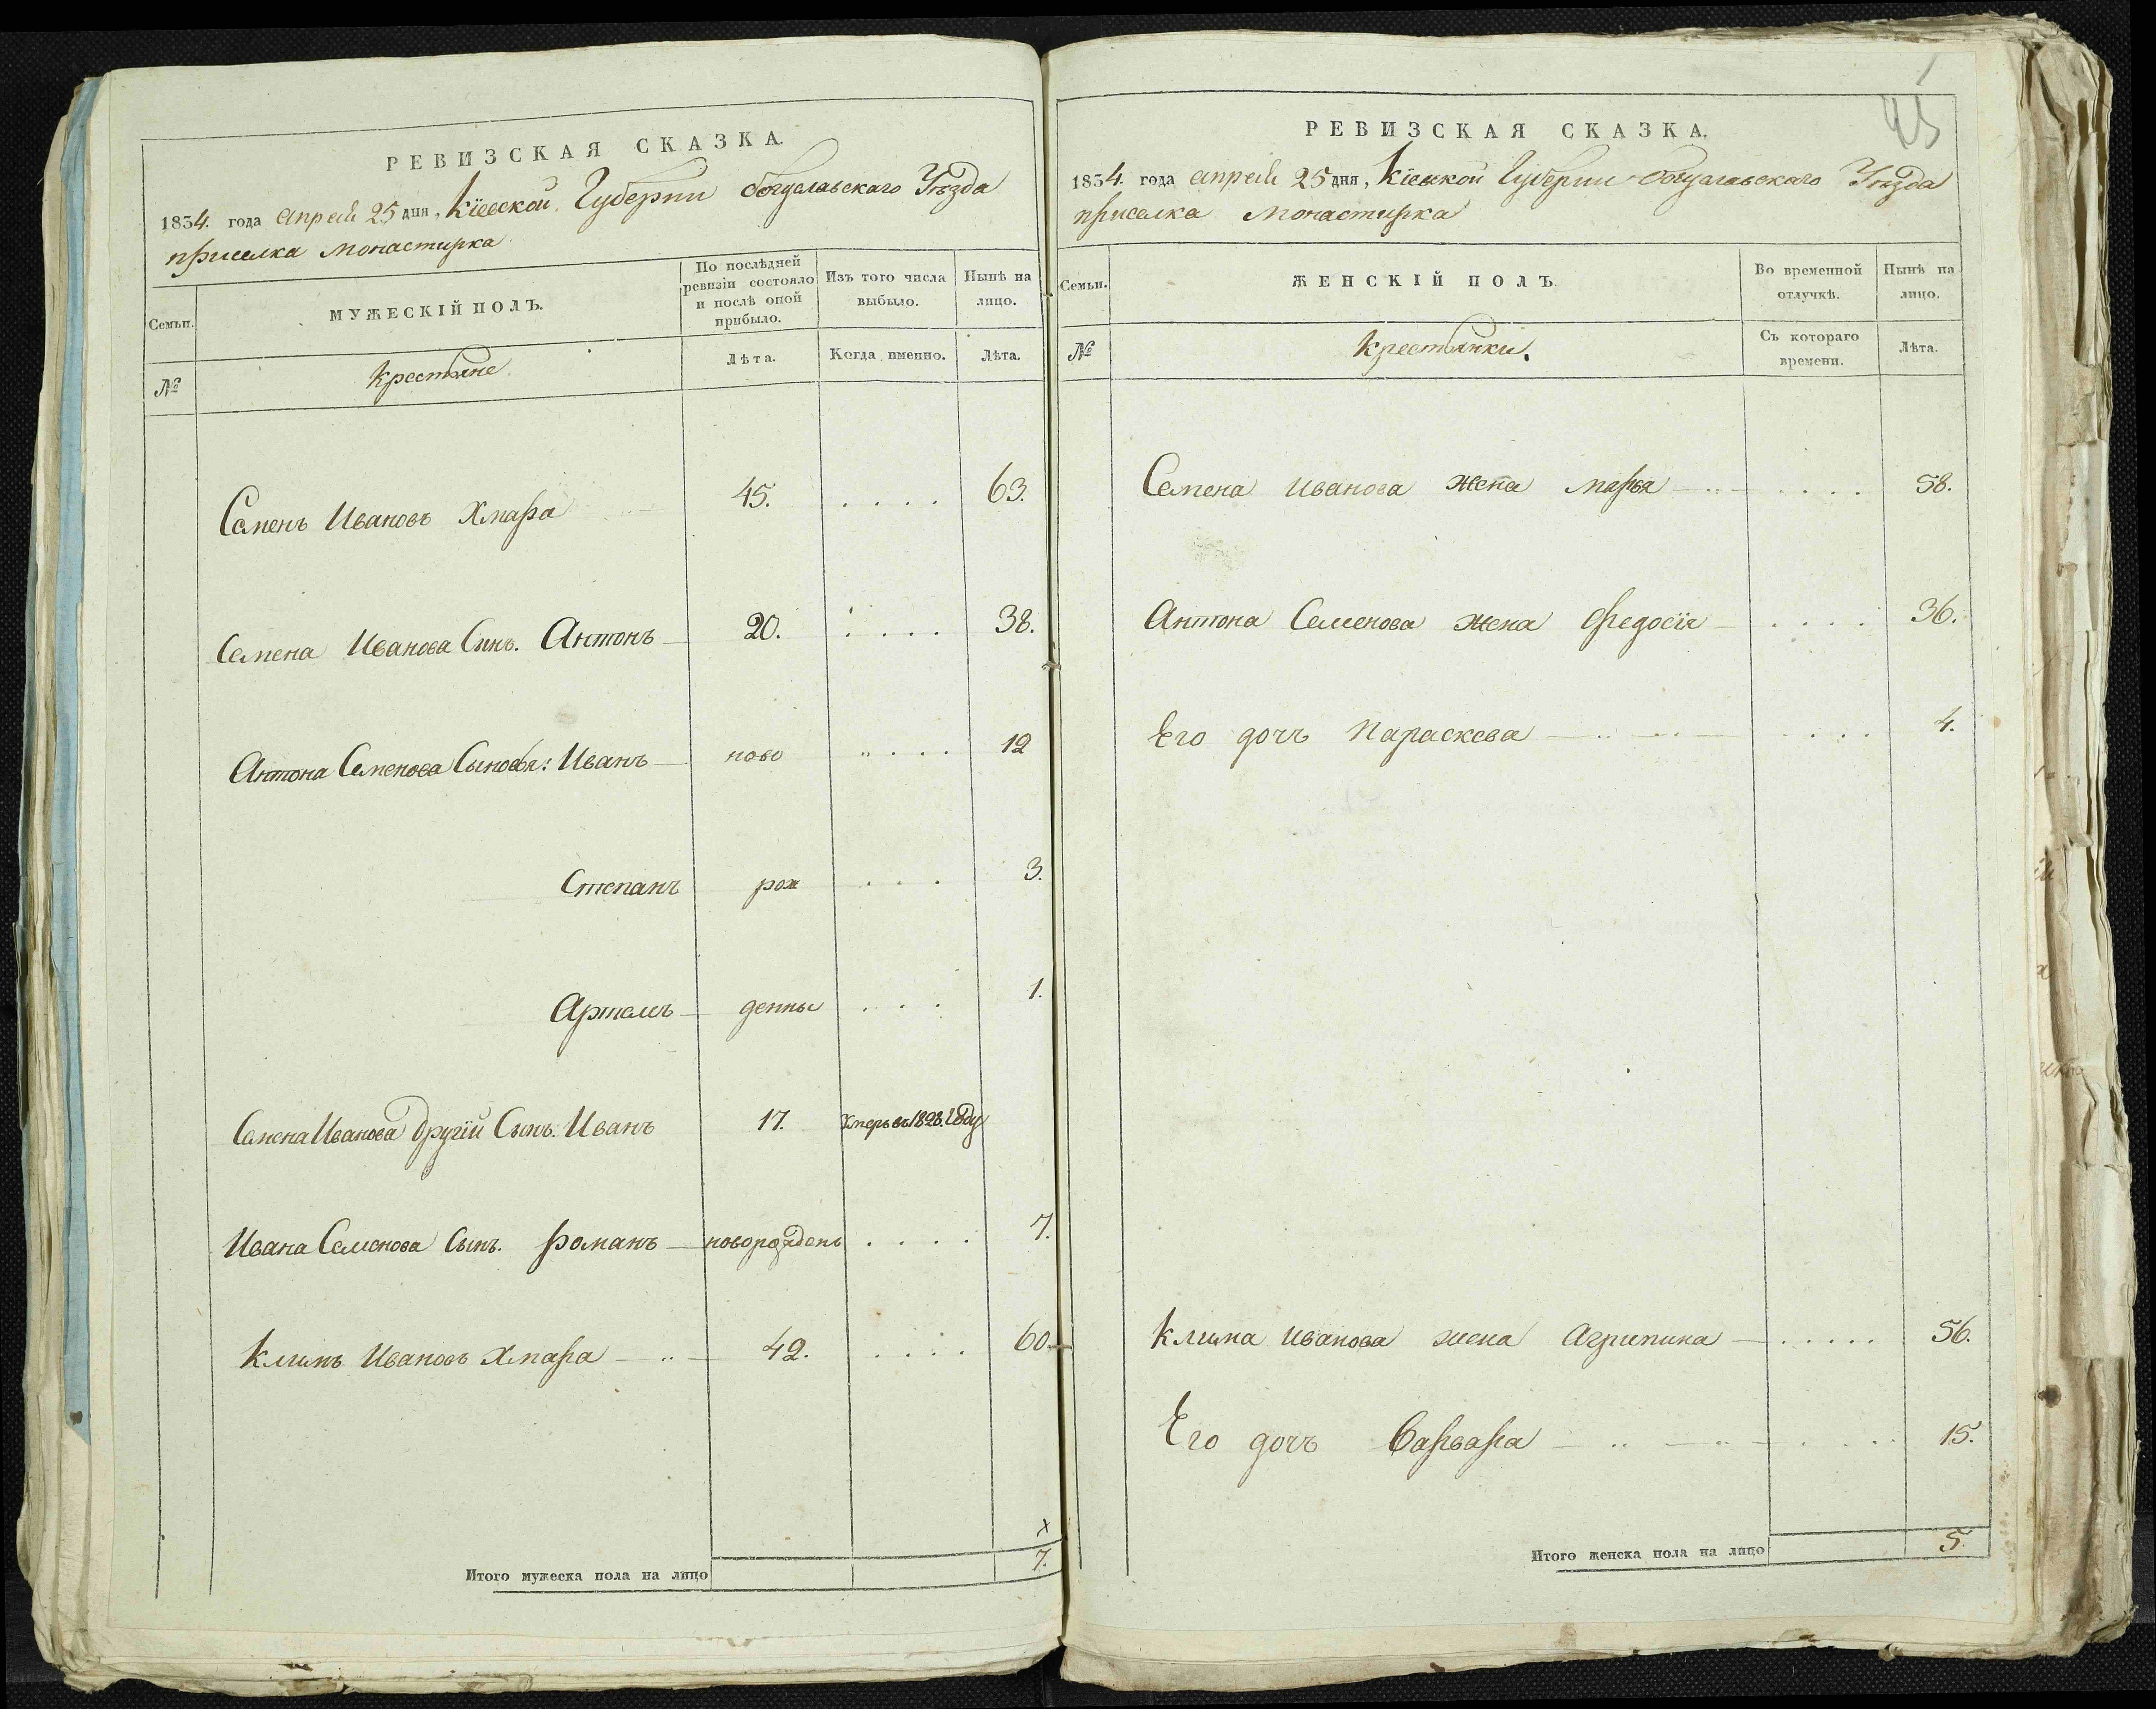 РЕВИЗСКАЯ СКАЗКА.
1834. года апреля 25 дня, Кіевской Губерніи богуславскаго Уѣзда
приселка Монастирка
Семьи.
МУЖЕСКІЙ ПОЛЪ.
По послѣдней ревизіи состояло и послѣ оной прибыло.
Изъ того числа выбыло.
Нынѣ на лицо.
№
Крестьяне
Лѣта.
Когда именно.
Лѣта.
Семенъ Ивановъ Хмара 45. 63.
Семена Иванова Сынъ. Антонъ 20. 38.
Антона Семенова Сыновья: Иванъ ново 12
Степанъ рож 3.
Артемъ денны 1.
Семена Иванова другій Сынъ. Иванъ 17. Умеръ въ 1828. Году
Ивана Семенова Сынъ. Романъ новорожденъ 7.
Климъ Ивановъ Хмара 42. 60
Итого мужеска пола на лицо 7.
45
РЕВИЗСКАЯ СКАЗКА.
1834. года апреля 25 дня, Кіевской Губерніи богуславскаго Уѣзда
приселка Монастирка
Семьи.
ЖЕНСКІЙ ПОЛЪ.
Во временной отлучкѣ.
Нынѣ на лицо.
№
Крестьянки.
Съ котораго времени.
Лѣта.
Семена Иванова жена марья 58.
Антона Семенова жена Федосія 36.
Его дочъ Параскева 4.
Клима Иванова жена Агрипина 56.
Его дочъ Варвара 15.
Итого женска пола на лицо 5.